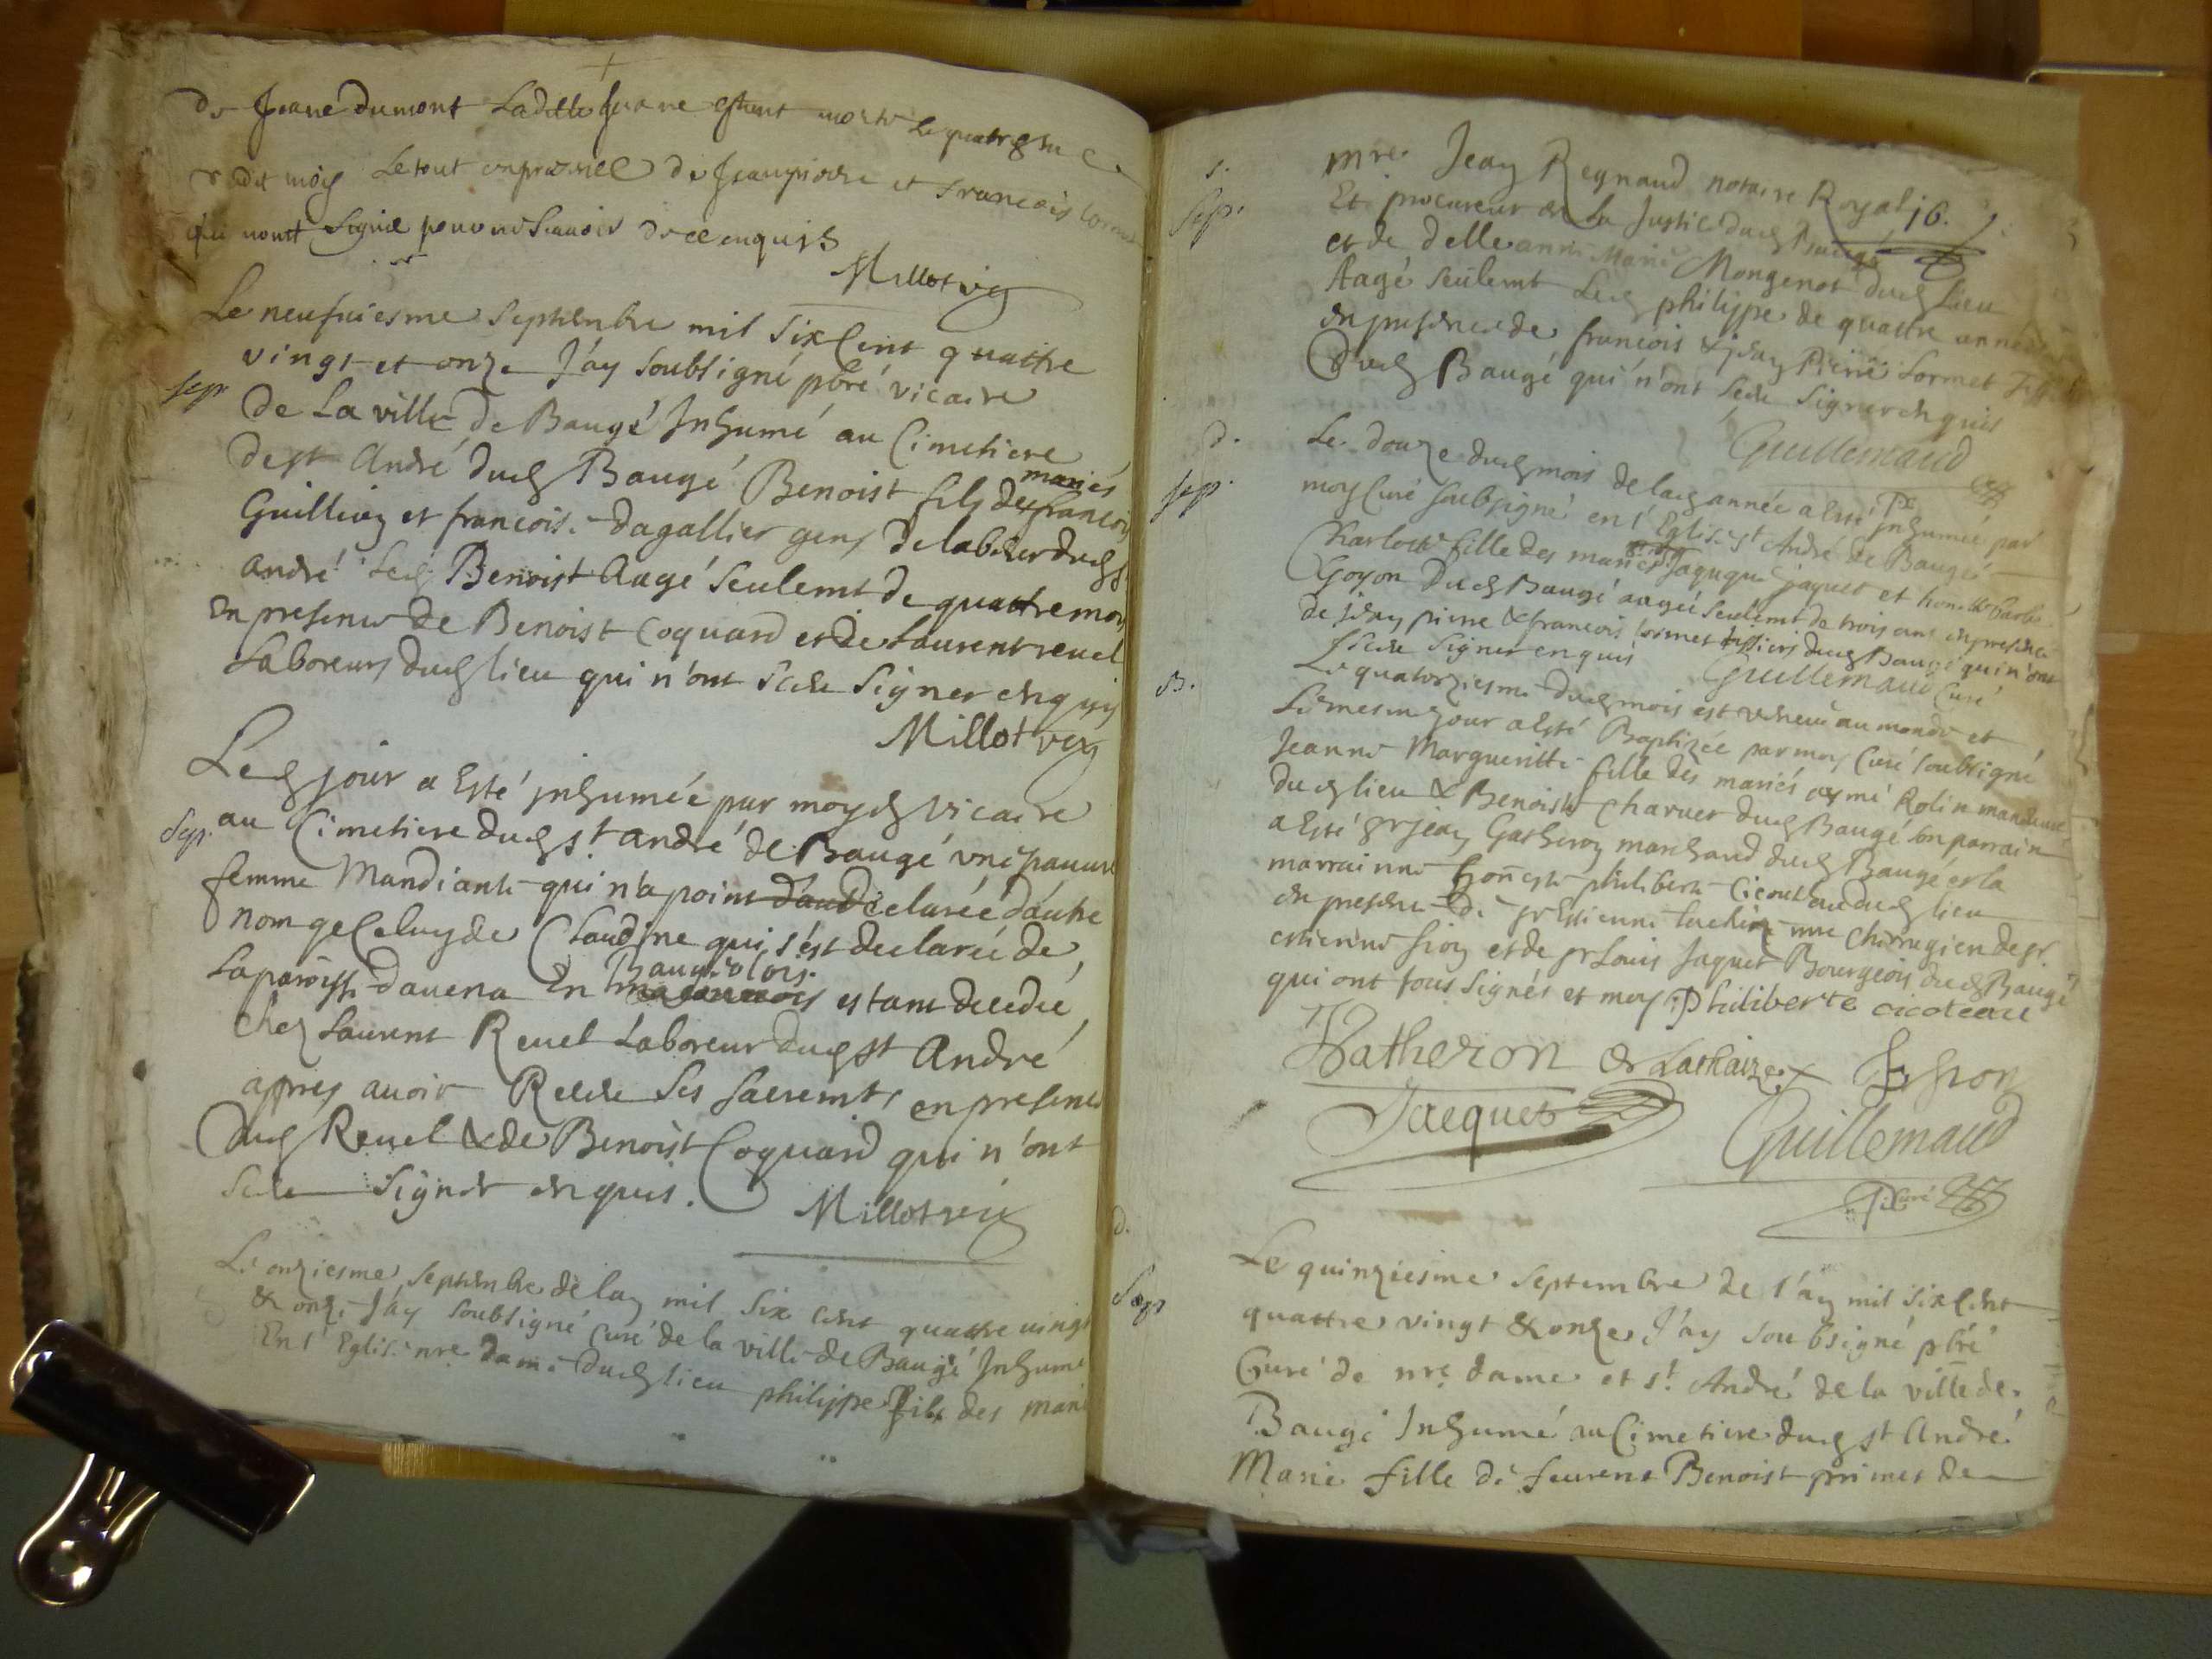 de Jeane dumont Ladille Jeane estant morte le quatriesme
dudit mois Le tout en presence de Jean pierre et francois Cormet
qui nont signé pour ne scavoir de ce enquis
Millot vic
Le neufuiesme Septembre mil Six Cent quattre
vingt et onze J'ay soubsigné pbré vicaire
Sep
De La ville de Baugé Inhumé au Cimetiere
de st André dud Baugé Benoist fils des mariés francois
Guillion et francoise Dagallier gens de labeur dud st
André Led Benoist Aagé Seulemt de quattre mois
En presence de Benoist Coquard et de Laurent reuel
Laboreurs dud lieu qui n'ont sceu signer enquis
Millot vic
Led jour a esté inhumée par moyd vicaire
Sep. au Cimetiere dud st andré de Baugé vne pauure
femme Mandiante qui n'a point d'au declarée d'autre
nom que Celuy de Claudine qui s'est declarée de
La paroisse d'auena En Baugeolois estant decedée
Chez Laurent Reuel Laboreur dud st André
appres auoir Receu Ses sacremts en presence
dud Reuel & de Benoist Coquard qui n'ont
sceu signer enquis. Millot vic
Le onziesme Septembre de lan mil Six cent quattre uingt
& onze J'ay soubsigné curé de la ville de Baugé Inhumé
En l'Eglise nre dame dud lieu philippe fils des marié
16.
S.
Sep.
mre Jean Reynaud notaire Royal
Et procureur en La Justice dud Baugé
et de delle anne Marie Mongenot dud lieu
Aagé seulemt Led philippe de quattre années
en presence de francois & jean Pierre Cormet
dud Baugé qui n'ont sceu signer enquis
Guillemaud
D.
Sep.
Le douze dud mois de lad année a esté inhumée par
moy Curé soubsigné en l'Eglise st André de Baugé
Charlotte fille des mariés Jaques Jaquet et
Goyon dud Baugé aagée seulemt de trois ans en presence
de jean pierre & francois Cormet tissiers dud Baugé qui n'ont
sceu signer enquis Guillemaud Curé
B.
Le quatorziesme dud mois est venue au monde et
Le mesme jour a esté Baptizée par moy Curé soubsigné
Jeanne Margueritte fille des mariés aymé Rolin
dud lieu & Benoiste Charuet dud Baugé son parrain
a esté sr jean Gatheron marchand dud Baugé et la
marrainne honneste philiberte Cicoteau dud lieu
en presence de sr Estienne mre Chirurgien de st
estienne sion et de sr Louis Jaquet Bourgeois dud Baugé
qui ont tous signés et moy Philiberte cicoteau
Gatheron
Jacquet
Guillemaud
Pr Curé
D.
Sep
Le quinziesme Septembre de l'an mil six Cent
quattre vingt & onze J'ay soubsigné pbré
Curé de nre dame et st. André de la ville de
Baugé Inhumé au Cimetiere dud st André
Marie fille de Laurent Benoist